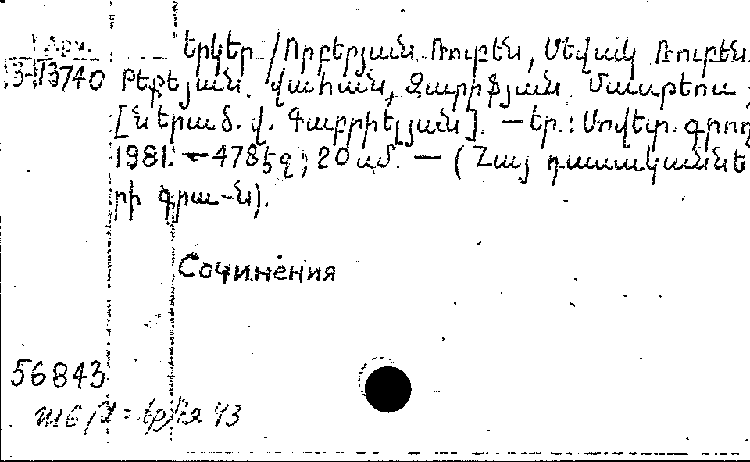 Երկեր / Որբերյան Ռուբեն, Սևակ Ռուբեն
3-13740 Թեքեյան Վահան, Զարիֆյան Մատթեոս;
[Ներած. Վ. Գաբրիելյան]. — Եր.: Սովետ. գրող
1981. — 478 էջ; 20 սմ. — (Հայ դասականնե
րի գրա-ն).
Сочинения
56843